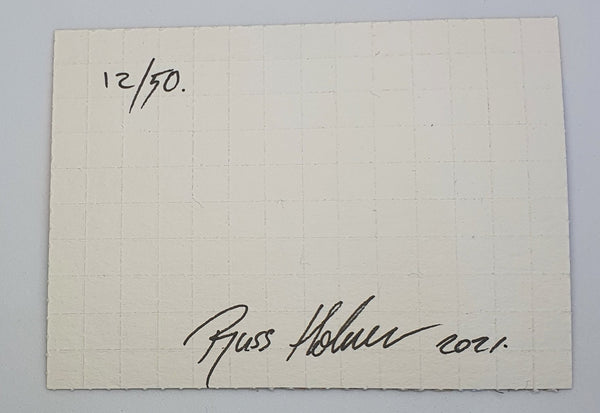 12/50.
Russ Holmes 2021.